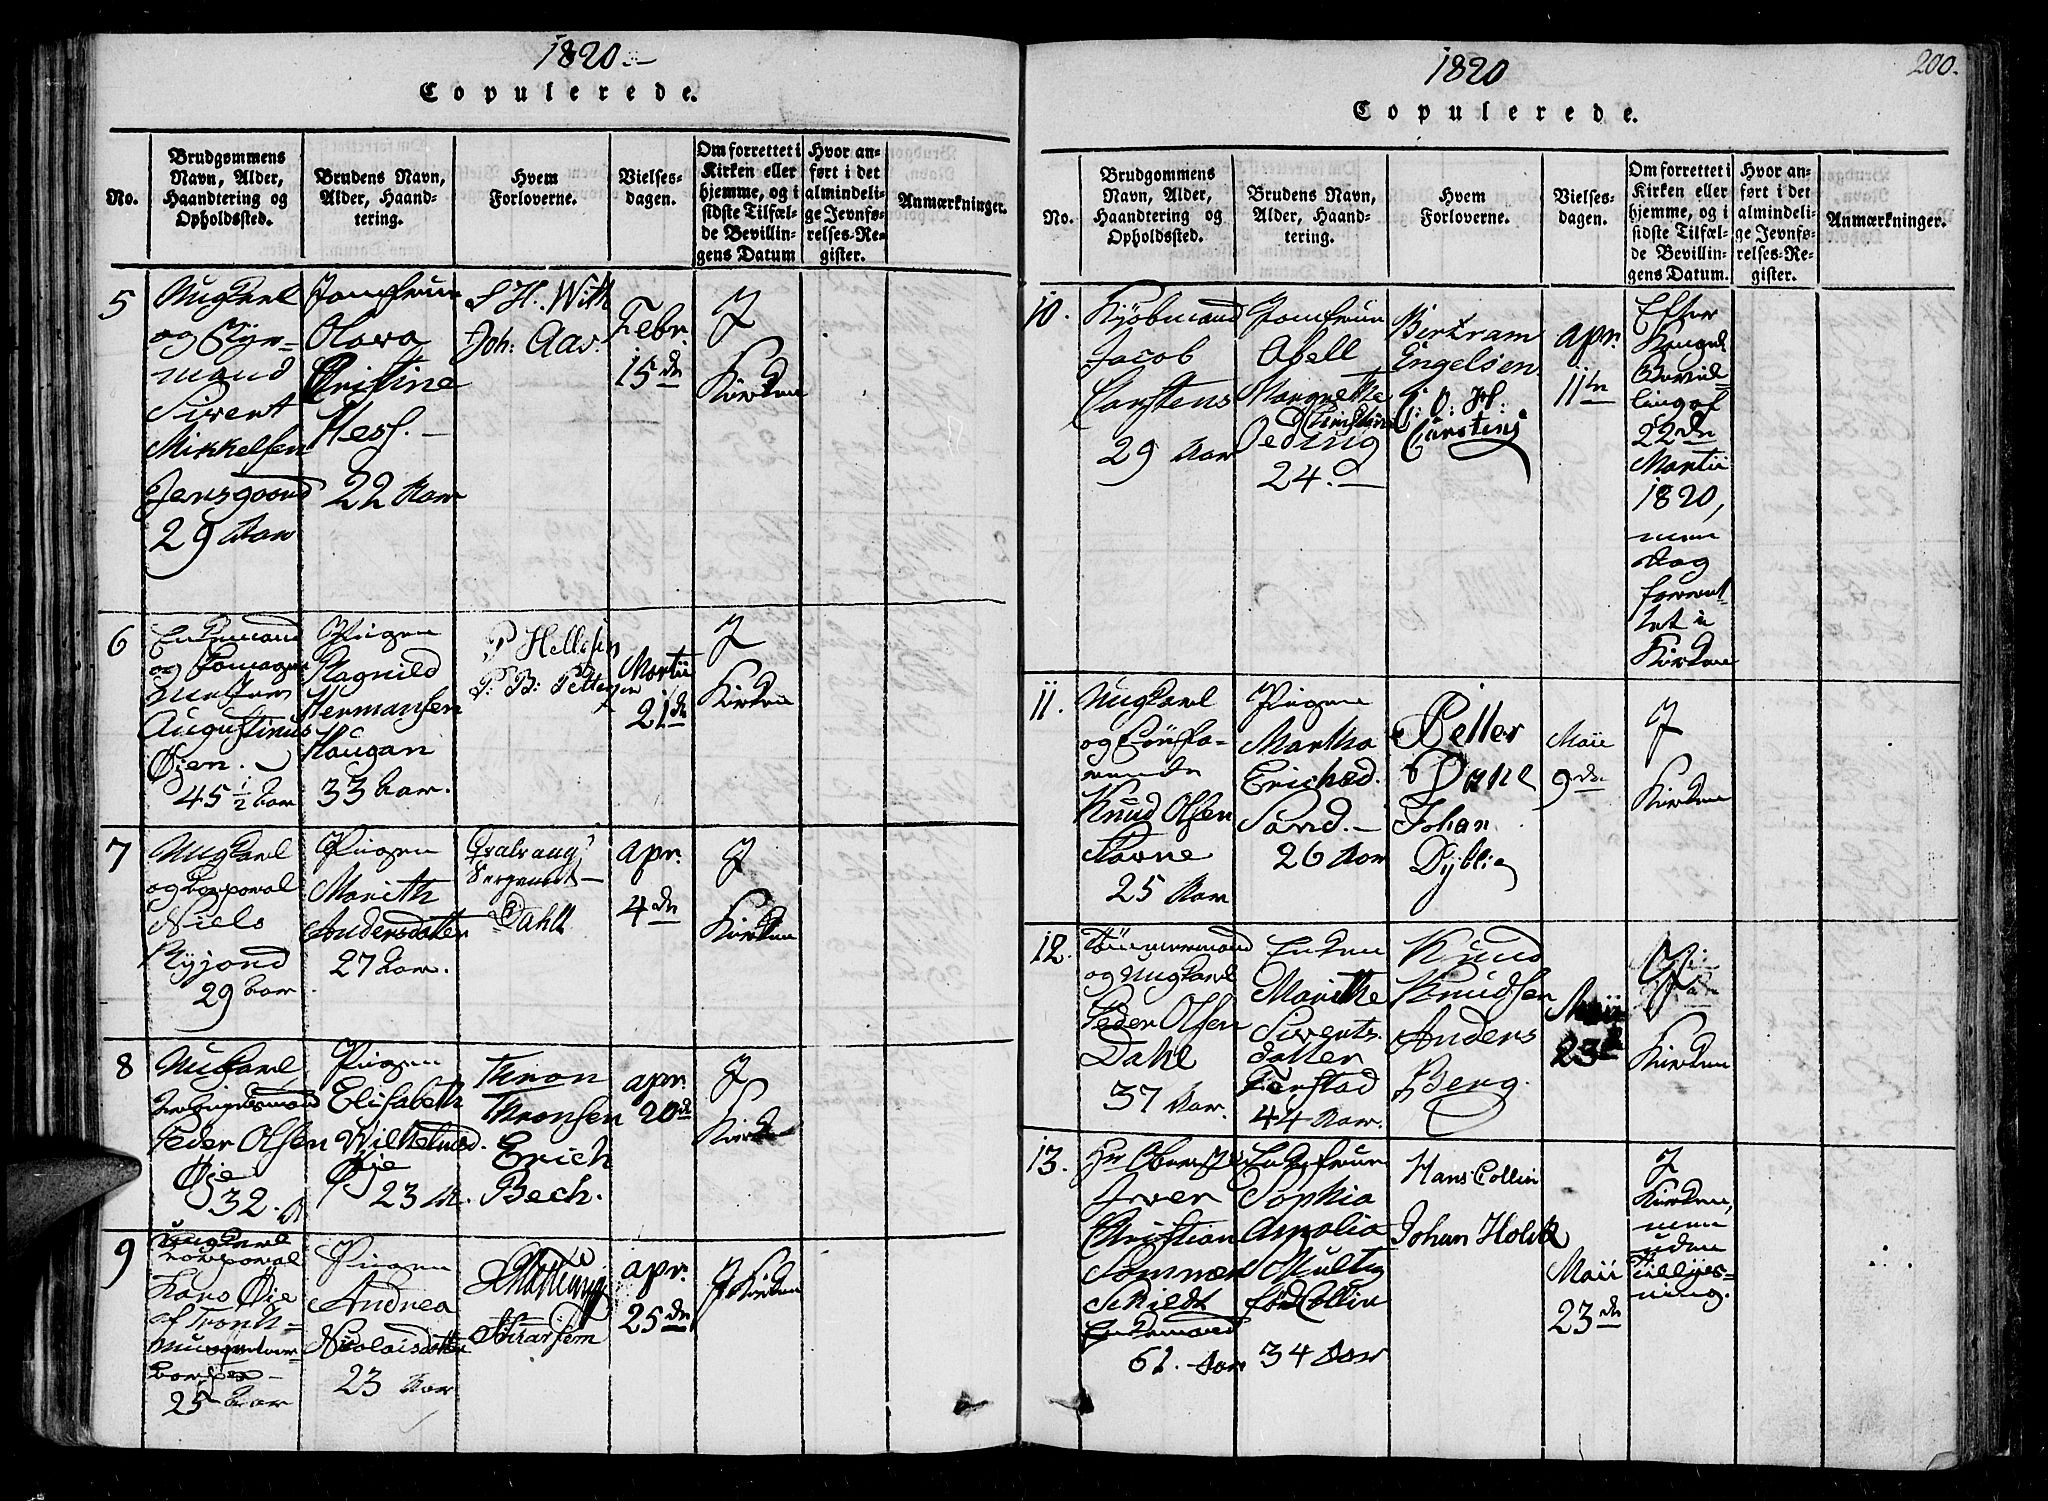 1820.
Copulerede.
No.
Brudgommens
Navn, Alder,
Haandtering og
Opholdssted.
Brudens Navn,
Alder, Haand-
tering.
Hvem
Forloverne.
Vielses-
dagen.
Om forrettet i
Kirken eller
hjemme, og i
sidste Tilfæl-
de Bevillin-
gens Datum
Hvor an-
ført i det
almindeli-
ge Jevnfø-
relses-Re-
gister.
Anmærkninger.
5
Ungkarl
og Styr-
mand
Sivert
Mikkelsen
Jensgaard
29 Aar
Jomfrue
Olava
Christine
Hess.
22 Aar
S H. With
Joh: Aas.
Febr.
15 de
I
Kirken
6
Enkemand
Augustinus
Øien.
45 1/2 Aar
Pigen
Ragnild
Hermansen
Haugan
33 Aar.
P Hellesen
P. B: Pettersen
Martii
21 de
I
Kirken
7
Ungkarl
og Corporal
Niels
Ryjord
29 Aar
Pigen
Marith
Andersdatter
27 Aar.
Sergeant
Dahll
apr.
4 de
I
Kirken
8
Ungkarl
Peder Olsen
Øje
32.
Pigen
Elisabeth
Wilhelmsd.
Øje
23 A.
Thron
Thronsen
Erich
Bech.
apr.
20 de
I
Kirken
9
Ungkarl
Corporal
Lars Øie
af Tronh-
25 Aar
Pigen
Andrea
Nicolaisdatter
23 Aar
apr.
25 de
I Kirken
1820
200.
Copulerede.
No.
Brudgommens
Navn, Alder,
Haandtering og
Opholdssted.
Brudens Navn,
Alder, Haand-
tering.
Hvem
Forloverne.
Vielses-
dagen.
Om forrettet i
Kirken eller
hjemme, og i
sidste Tilfæl-
de Bevillin-
gens Datum.
Hvor an-
ført i det
almindeli-
ge Jevnfø-
relses-Re-
gister.
Anmærkninger.
10.
Kjøbmand
Jacob
Carstens
29 Aar
Jomfrue
Abell
Margrethe
Christine
Oeding
24.
Bertram
Engelsen
C: O: H:
Carstens
apr.
11te
Efter
Kongel.
Bevil-
ling af
22 de
Martii
1820,
men
dog
forret-
tet i
Kirken
11.
Ungkarl
og Søefa-
rende
Knud Olsen
Stavne
25 Aar
Pigen
Martha
Erichsd.
Sand.
26 Aar
Petter
Dahl
Johan
Dyblie
Maii
9 de
I
Kirken
12.
Tømmermand
og Ungkarl
Peder Olsen
Dahl
37 Aar.
Enken
Marithe
Siverts-
datter
Ferstad
44 Aar.
Knud
Knudsen
Anders
Berg.
Maii
23 de
I
Kirken
13.
Hr Oberste
Iver
Christian
Sommer
Schieldt
Enkemand
61. Aar
Enkefrue
Sophia
Amalia
Schultz
født Collin
34 Aar
Hans Collin
Johan Holck
Maii
23 de
I
Kirken,
men
uden
Tillys-
ning.